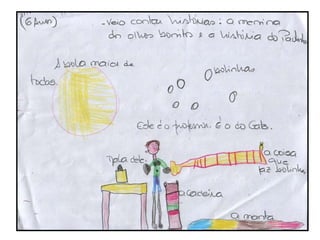 (6 Anos) - veio contar histórias: a menina
dos olhos bonitos e a história do
A bola maior de
todas.
bolinhas
Este é o professor. É o do Gato.
dele.
a coisa
que
faz bolinhas
a cadeira
a manta